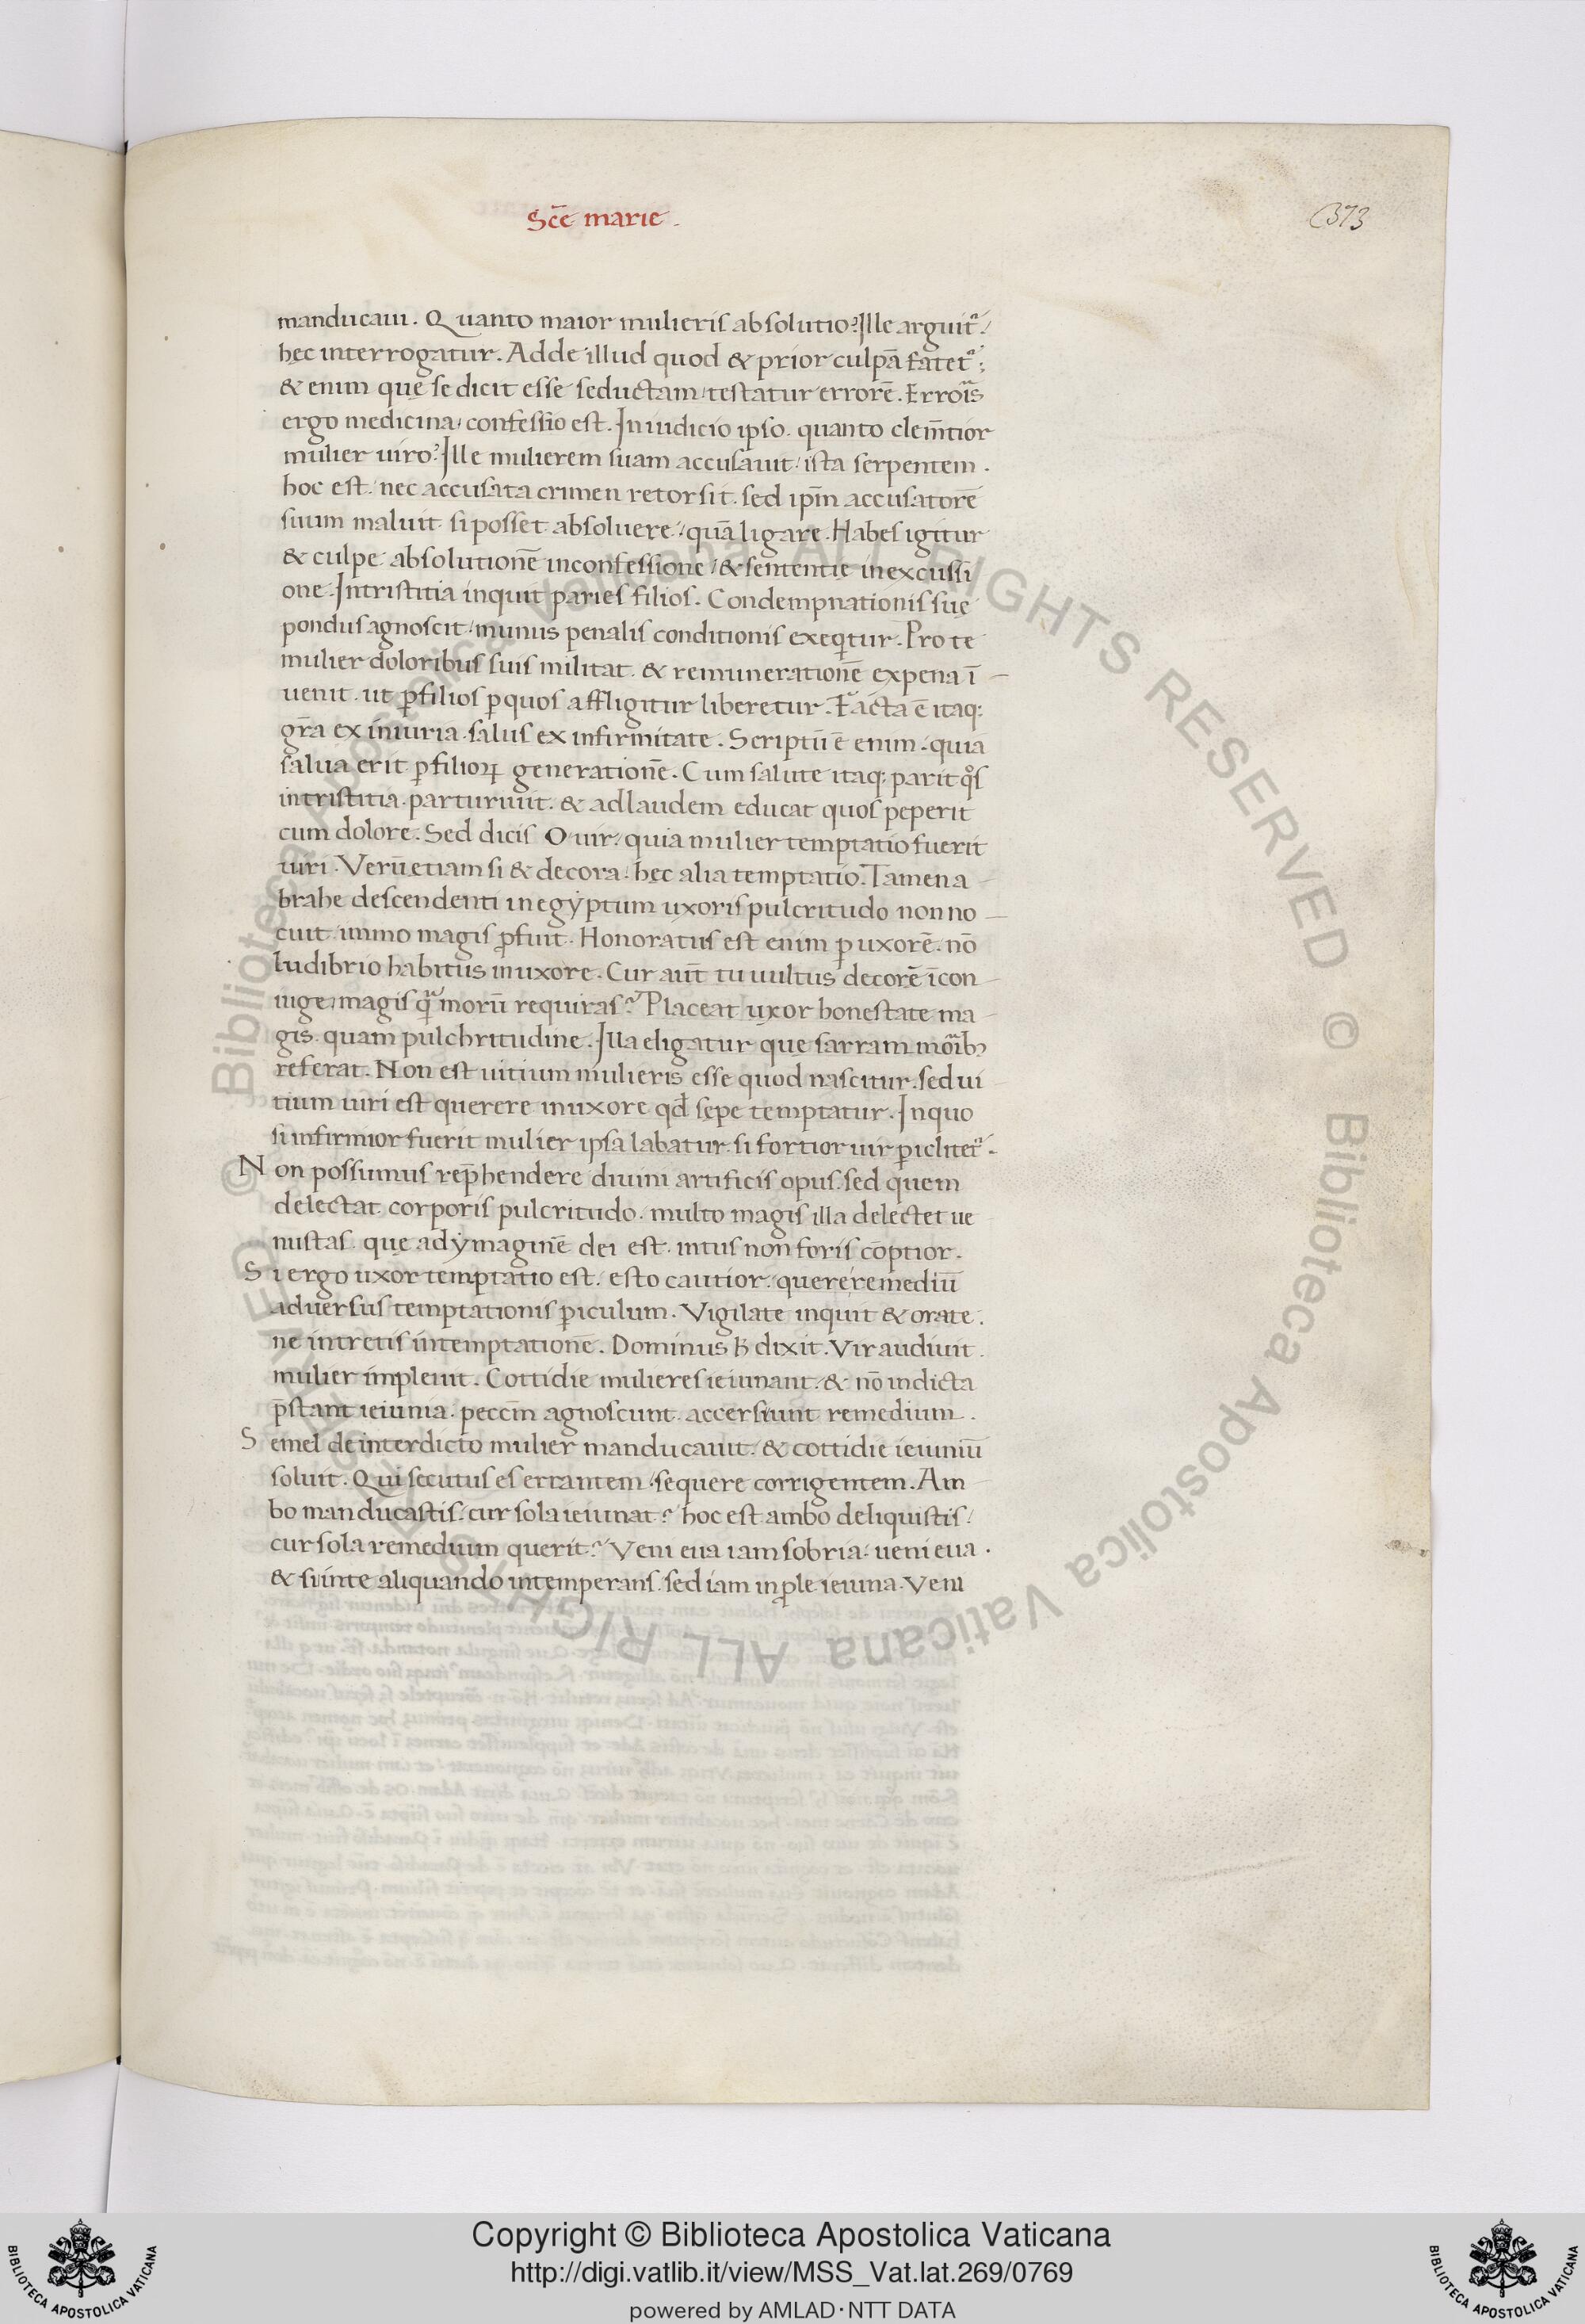 Sc̄e marie.
373
manducaui. Quanto maior mulieris absolutio? Ille arguit᷑.
hęc interrogatur. Adde illud quod & prior culpā fatet᷑.
& enim quę se dicit esse seductam, testatur errorē. Erroris
ergo medicina, confessio est. In iudicio ipso. quanto clem̄tior
mulier uiro? Ille mulierem suam accusauit, ista serpentem.
hoc est. nec accusata crimen retorsit. sed ip̄m accusatorē
suum maluit si posset absoluere, quā ligare. Habes igitur
& culpe absolutionē in confessione, & sententie in excussi
one. In tristitia inquit paries filios. Condempnationis suę
pondus agnoscit, munus penalis conditionis exeqitur. Pro te
mulier doloribus suis militat. & remunerationē ex pena ī
uenit. ut ꝑ filios ꝑ quos affligitur liberetur. Facta ē itaq;
gr̄a ex iniuria. salus ex infirmitate. Scriptū ē enim. quia
salua erit ꝑ filioꝝ generationē. Cum salute itaq; parit qͦs
in tristitia parturiuit. & ad laudem educat quos peperit
cum dolore. Sed dicis O uir, quia mulier temptatio fuerit
uiri. Verū etiam si & decora, hęc alia temptatio. Tamen a
brahe descendenti in egẏptum uxoris pulcritudo non no
cuit immo magis ꝓfuit. Honoratus est enim ꝑ uxorē. nō
ludibrio habitus in uxore. Cur aut̄ tu uultus decorē ī con
iuge magis qᷓ morū requiras? Placeat uxor honestate ma
gis quam pulchritudine. Illa eligatur quę sarram morib;
referat. Non est uitium mulieris esse quod nascitur. sed ui
tium uiri est querere in uxore qd̄ sępe temptatur. In quo
si infirmior fuerit mulier ipsa labatur. si fortior uir ꝑiclitet᷑.
Non possumus rep̄hendere diuini artificis opus. sed quem
delectat corporis pulcritudo. multo magis illa delectet ue
nustas. quę ad ẏmaginē dei est. intus non foris cōptior.
Si ergo uxor temptatio est. esto cautior. quere remediū
aduersus temptationis ꝑiculum. Vigilate inquit & orate.
ne intretis in temptationē. Dominus h̄ dixit. Vir audiuit.
mulier impleuit. Cottidie mulieres ieiunant. & nō indicta
p̄stant ieiunia. pecc̄m agnoscunt. accersiunt remedium.
Semel de interdicto mulier manducauit. & cottidie ieiuniū
soluit. Qui secutus es errantem, sequere corrigentem. Am
bo manducastis. cur sola ieiunat? hoc est ambo deliquistis.
cur sola remedium querit? Veni eua iam sobria. ueni eua.
& si in te aliquando intemperans. sed iam in ꝓle ieiuna. Veni
© Biblioteca Apostolica Vaticana ALL RIGHTS RESERVED
© Biblioteca Apostolica Vaticana ALL RIGHTS RESERVED
Copyright © Biblioteca Apostolica Vaticana
http://digi.vatlib.it/view/MSS_Vat.lat.269/0769
powered by AMLAD·NTT DATA
BIBLIOTECA APOSTOLICA VATICANA
BIBLIOTECA APOSTOLICA VATICANA